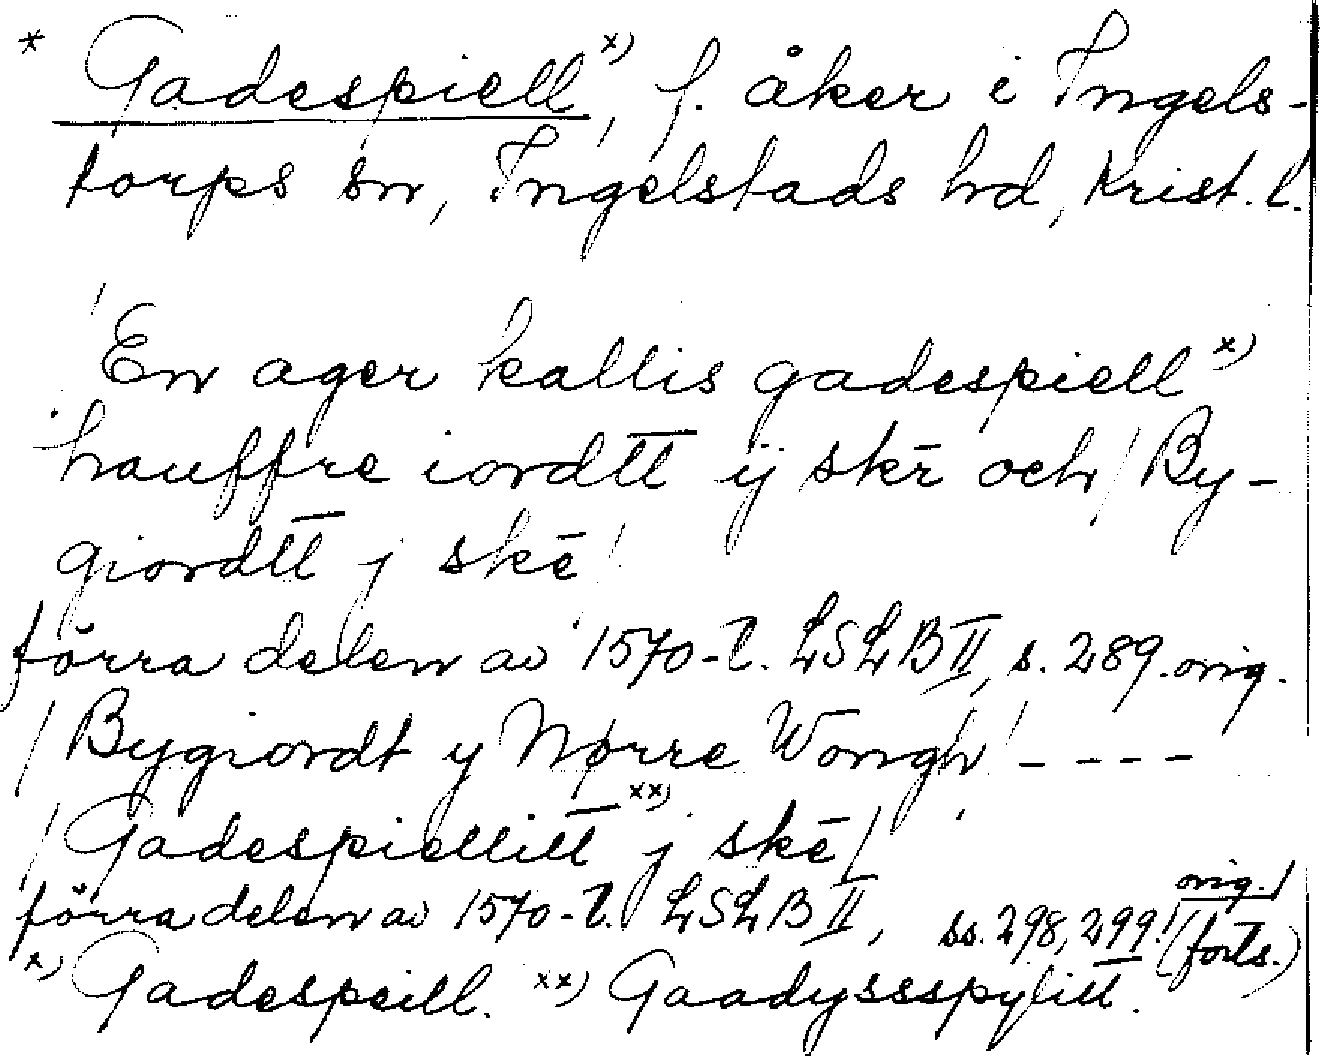 * Gadespiell x), f. åker i Ingels-
torps sn, Ingelstads hd, Krist. l.
/En ager kallis gadespiell x)
hauffre iordtt ij skē och / By-
giordtt j skē /
förra delen av 1570-t. LSLB II, s. 289. orig.
/ Bygiordt y Nørre Wongh / - - - -
/ Gadespiellitt xx) j skē /
förra delen av 1570-t. LSLB II, ss. 298, 299! orig. / (forts.)
x) Gadespeill. xx) Gaadyssspylitt.